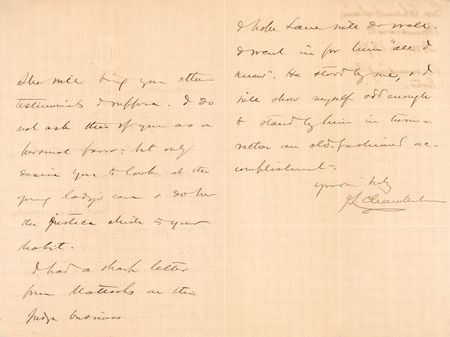 She will bring you other
testimonials I suppose. I do
not ask this of you as a
personal favor: but only
desire you to look at the
young lady's case & do her
the justice which is your
habit.
I had a sharp letter
from on the
Judge business
I hope Lane will do well.
I went in for him "all I
knew". He stood by me, & I
will show myself odd enough
to stand by him in turn—
rather an old-fashioned ac-
complishment—
yours truly